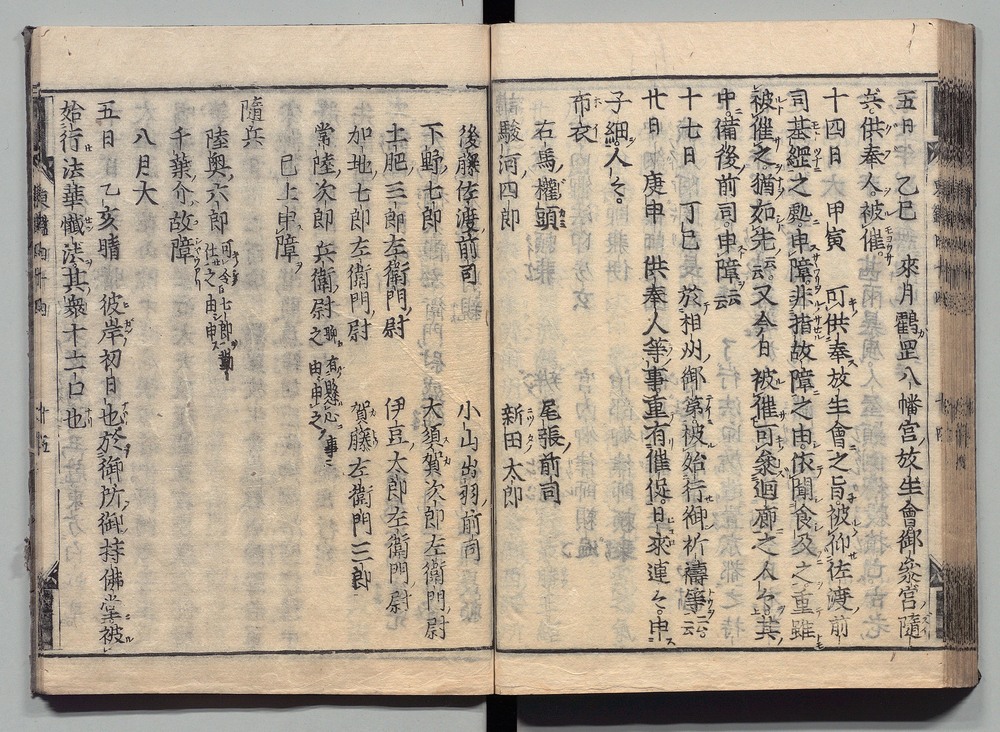 五日 乙巳 來月鸖罡八幡宮放生會御參宮隨
兵供奉人被催
十四日 甲寅 可供奉放生會之旨被仰佐渡前
司基綱之處申障非指故障之由依聞食及之重雖
被催之猶如先云云又今日被催可參迴廊之人々其
中備後前司申障云云
十七日 丁巳 於相州御第被始行御祈禱等云云
廿日 庚申 供奉人等事重有催促日來連々申
子細人々
布衣
右馬權頭 尾張前司
駿河四郎 新田太郎
後藤佐渡前司 小山出羽前司
下野七郎 大須賀次郎左衞門尉
土肥三郎左衞門尉 伊豆太郎左衞門尉
加地七郎左衞門尉 賀藤左衞門三郎
常陸次郎兵衞尉 聊有懸心事之由申之
已上申障
隨兵
陸奥六郎 可令七郎勤仕之由申
千葉介故障
八月大
五日 乙亥晴 彼岸初日也於御所御持佛堂被
始行法華懺法其衆十二口也